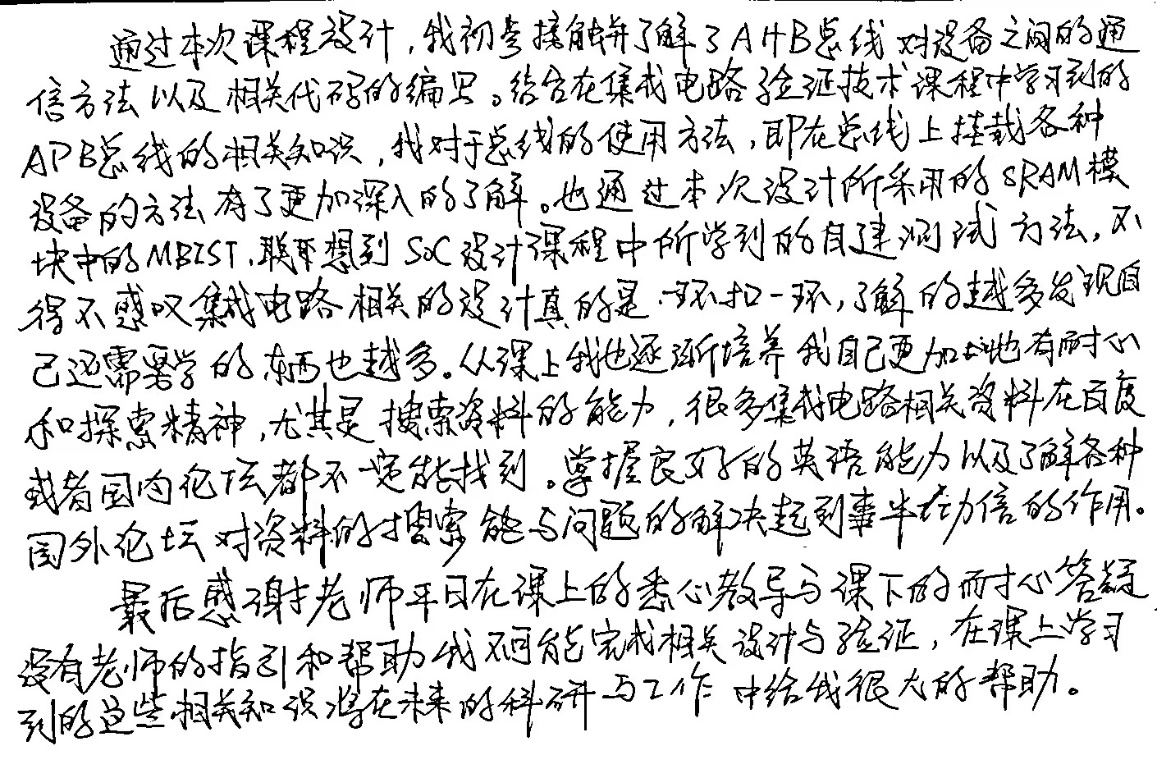 通过本次课程设计，我初步接触并了解了AHB总线对设备之间的通
信方法以及相关代码的编写。结合在集成电路验证技术课程中学习到的
APB总线的相关知识，我对于总线的使用方法，即在总线上挂载各种
设备的方法有了更加深入的了解。也通过本次设计所采用的SRAM模
块中的MBIST，联想到SoC设计课程中所学到的自建测试方法，不
得不感叹集成电路相关的设计真的是一环扣一环，了解的越多发现自
己还需要学的东西也越多。从课上我也逐渐培养我自己更加地有耐心
和探索精神，尤其是搜索资料的能力，很多集成电路相关资料在百度
或者国内论坛都不一定能找到。掌握良好的英语能力以及了解各种
国外论坛对资料的搜索能与问题的解决起到事半功倍的作用。
最后感谢老师平日在课上的悉心教导与课下的耐心答疑
没有老师的指引和帮助我不可能完成相关设计与验证，在课上学习
到的这些相关知识将在未来的科研与工作中给我很大的帮助。